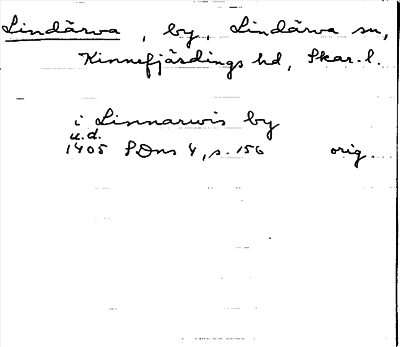 Lindärva, by, Lindärva sn,
Kinnefjärdings hd, Skar. l.
i Linnarwis by
u.d.
1405 SDns 4, s. 156 orig.